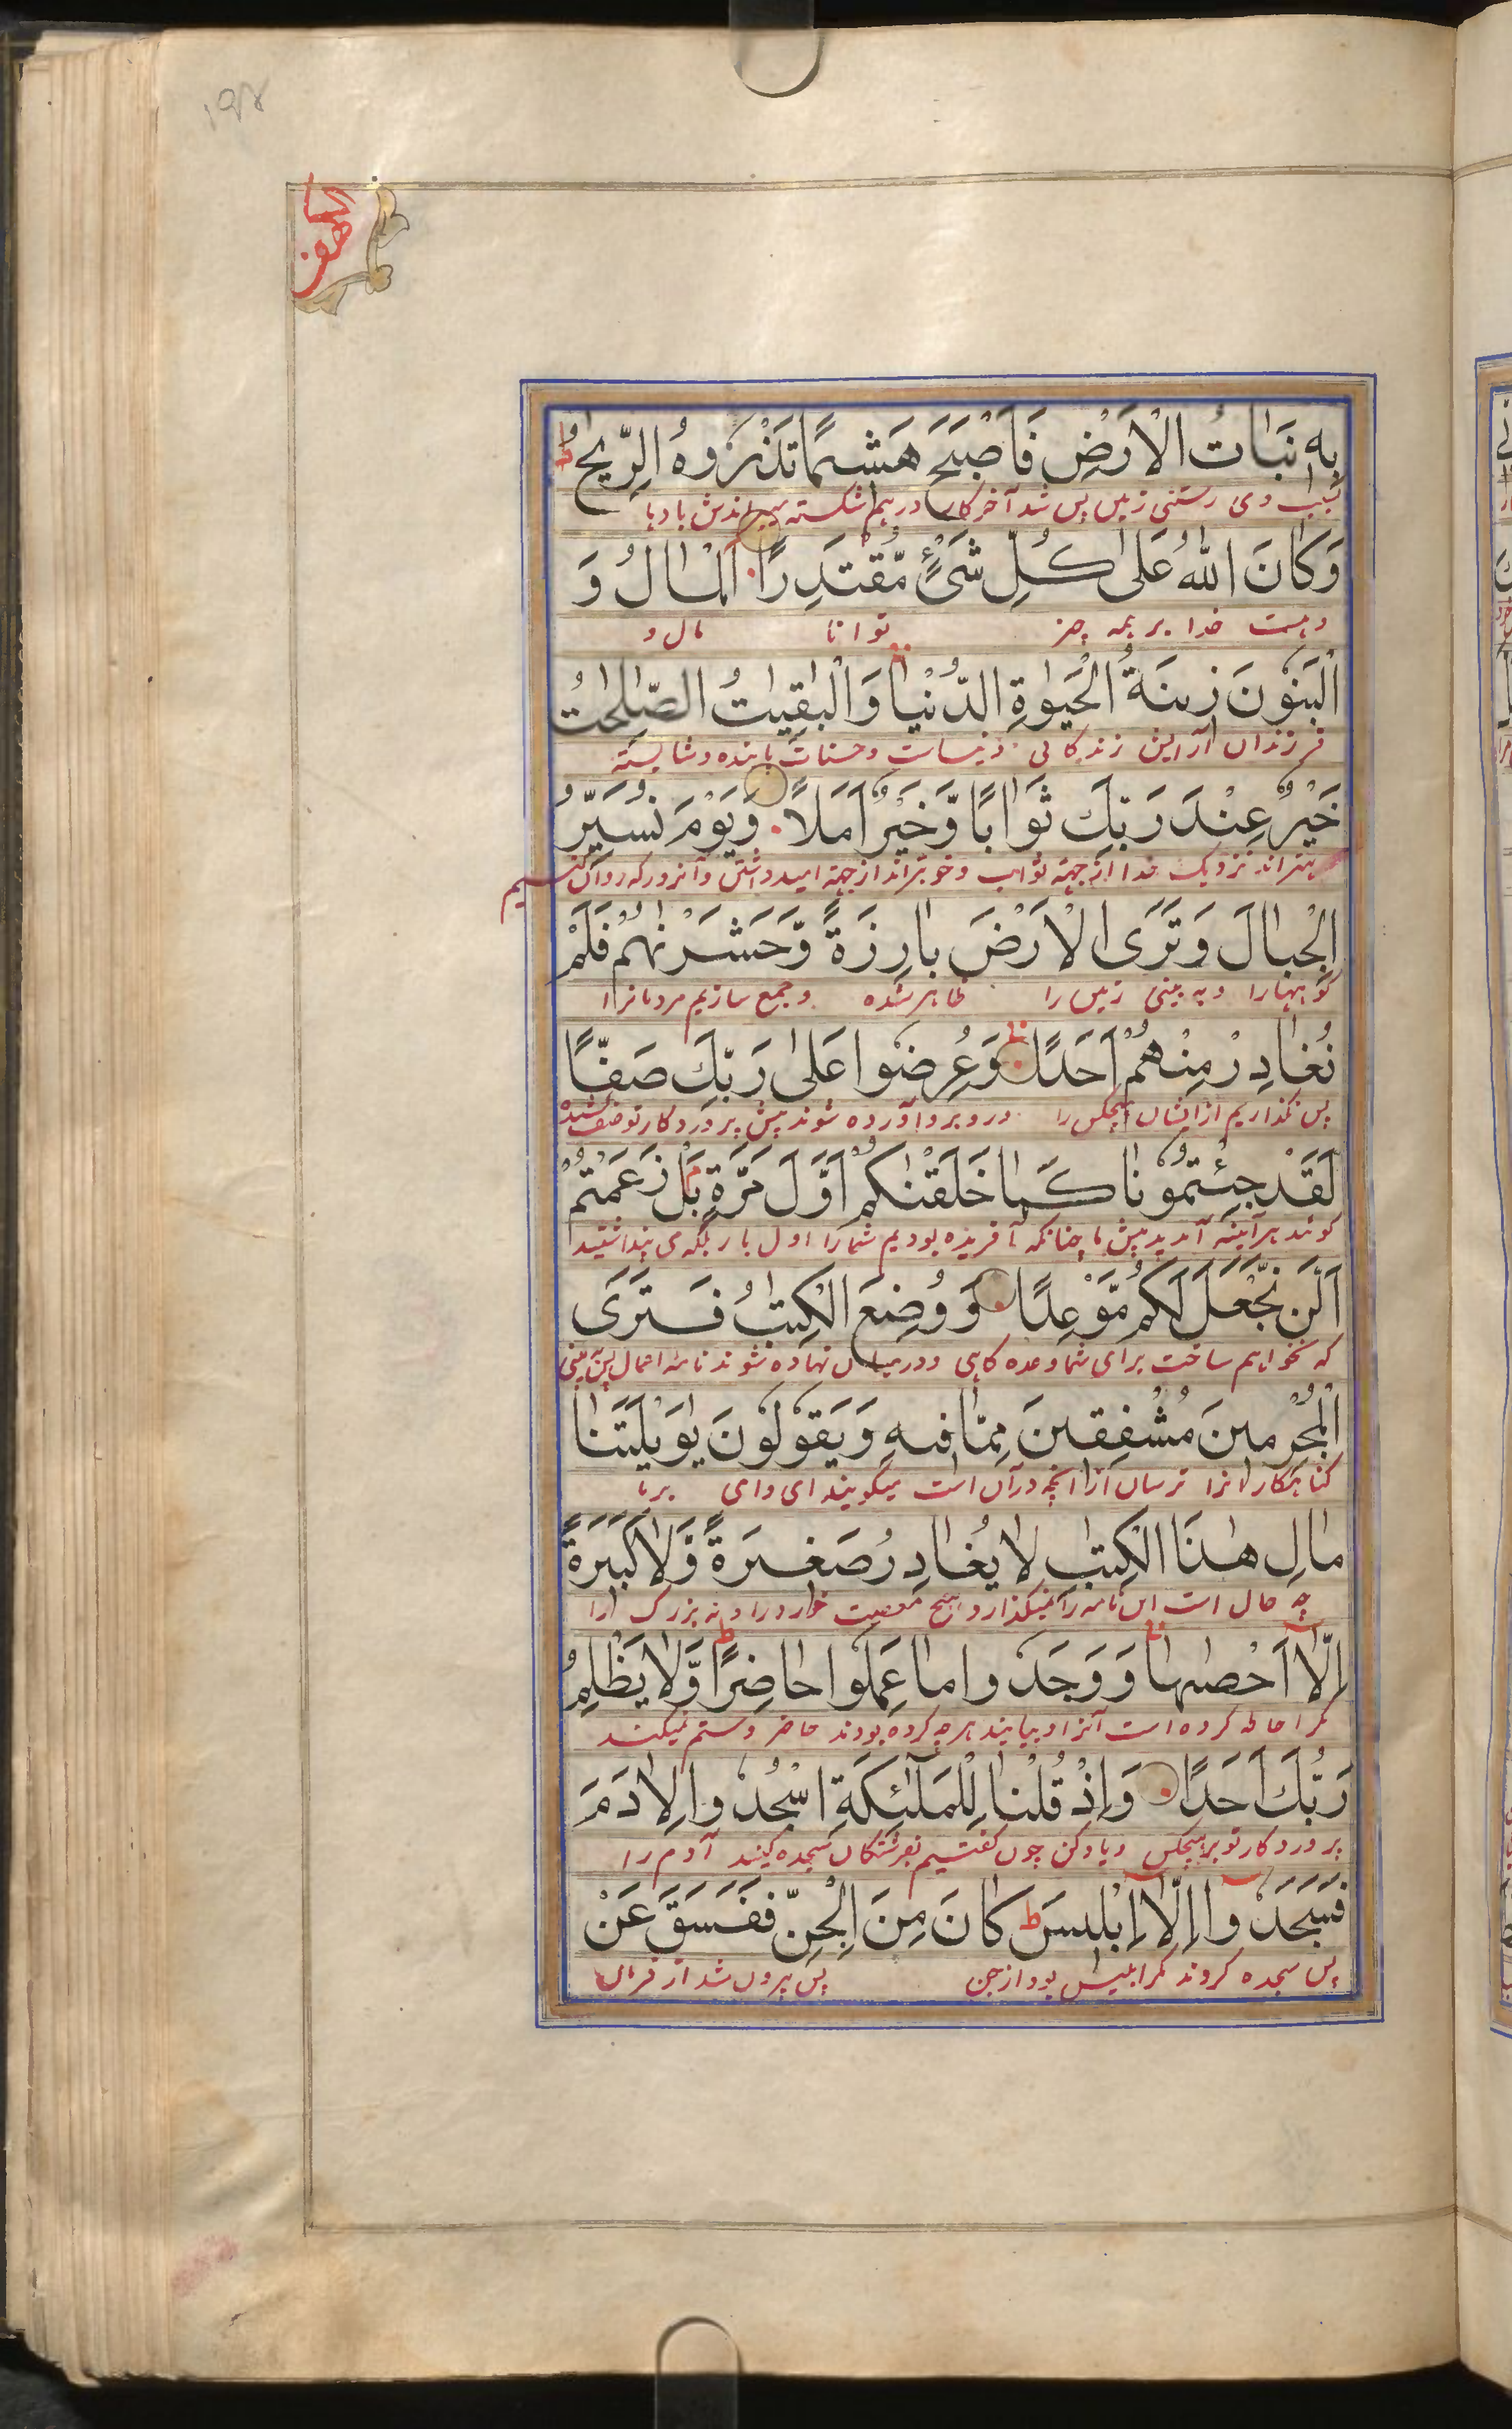 الکهف
بِهٖ نَبَاتُ الْاَرْضِ فَاَصْبَحَ هَشِيْمًا تَذْرُوْهُ الرِّيٰحُ ط
بسبب وی رستنی زمین پس شد آخر کار درهم شکسته میپراندش بادها
وَكَانَ اللّٰهُ عَلٰى كُلِّ شَيْءٍ مُّقْتَدِرًا اَلْمَالُ وَ
وهست خدا بر همه چیز توانا مال و
الْبَنُوْنَ زِيْنَةُ الْحَيٰوةِ الدُّنْيَا وَالْبٰقِيٰتُ الصّٰلِحٰتُ
فرزندان آرایش زندکانی دنیاست وحسنات پاینده وشایسته
خَيْرٌ عِنْدَ رَبِّكَ ثَوَابًا وَّخَيْرٌ اَمَلًا وَيَوْمَ نُسَيِّرُ
بهتراند نزدیک خدا از جهته ثواب وخوبتراند از جهته امید داشتن وآنروز که روان کنیم
الْجِبَالَ وَتَرَى الْاَرْضَ بَارِزَةً وَّحَشَرْنٰهُمْ فَلَمْ
کوههارا وبه بینی زمین را ظاهر شده وجمع سازیم مردمانرا
نُغَادِرْ مِنْهُمْ اَحَدًا وَعُرِضُوْا عَلٰى رَبِّكَ صَفًّا
پس نکذاریم از ایشان هیچکس را وروبرو آورده شوند پیش پروردکار تو صف کشیده
لَقَدْ جِئْتُمُوْنَا كَمَا خَلَقْنٰكُمْ اَوَّلَ مَرَّةٍ بَلْ زَعَمْتُمْ
کوئند هرآینه آمدید پیش ما چنانکه آفریده بودیم شمارا اول بار بلکه می پنداشتید
اَلَّنْ نَّجْعَلَ لَكُمْ مَّوْعِدًا وَوُضِعَ الْكِتٰبُ فَتَرَى
که نخواهیم ساخت برای شما وعده کاهی ودرمیان نهاده شوند نامه اعمال پس بینی
الْمُجْرِمِيْنَ مُشْفِقِيْنَ مِمَّا فِيْهِ وَيَقُوْلُوْنَ يٰوَيْلَتَنَا
کناهکارانرا ترسان از آنچه درآن است میکویند ای وای برما
مَالِ هٰذَا الْكِتٰبِ لَا يُغَادِرُ صَغِيْرَةً وَّلَا كَبِيْرَةً
چه حال است این نامه را نمیکذارد هیچ معصیت خورد را و نه بزرک را
اِلَّا اَحْصٰىهَا وَوَجَدُوْا مَا عَمِلُوْا حَاضِرًا ط وَّلَا يَظْلِمُ
مکر احاطه کرده است آنرا وبیابند هرچه کرده بودند حاضر وستم نمیکند
رَبُّكَ اَحَدًا وَاِذْ قُلْنَا لِلْمَلٰٓئِكَةِ اسْجُدُوْا لِاٰدَمَ
پروردکار تو بر هیچکس ویاد کن چون کفتیم بفرشتکان سجده کنید آدم را
فَسَجَدُوْا اِلَّا اِبْلِيْسَ ط كَانَ مِنَ الْجِنِّ فَفَسَقَ عَنْ
پس سجده کردند مکر ابلیس بود از جن پس بیرون شد از فرمان